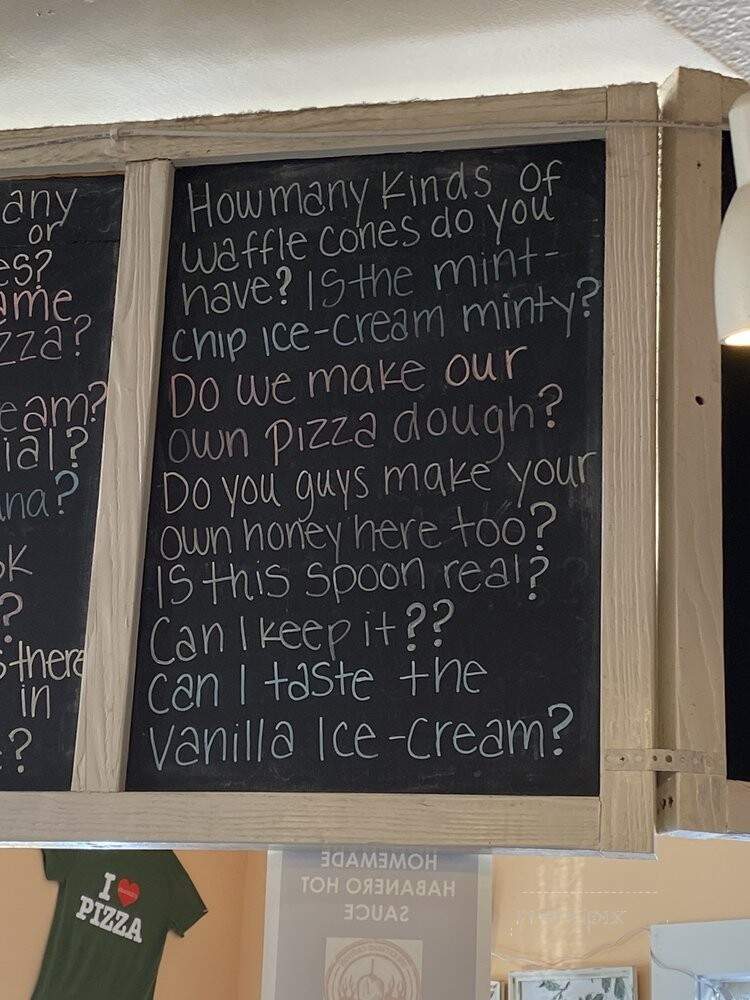 any
or
es?
ame
zza?
eam?
ial?
na?
ok
?
s there
in
?
How many kinds of
waffle cones do you
have? Is the mint-
chip ice-cream minty?
Do we make our
own pizza dough?
Do you guys make your
own honey here too?
Is this spoon real?
Can I keep it??
Can I taste the
Vanilla Ice-Cream?
I ❤
PIZZA
HOMEMADE
HABANERO HOT
SAUCE